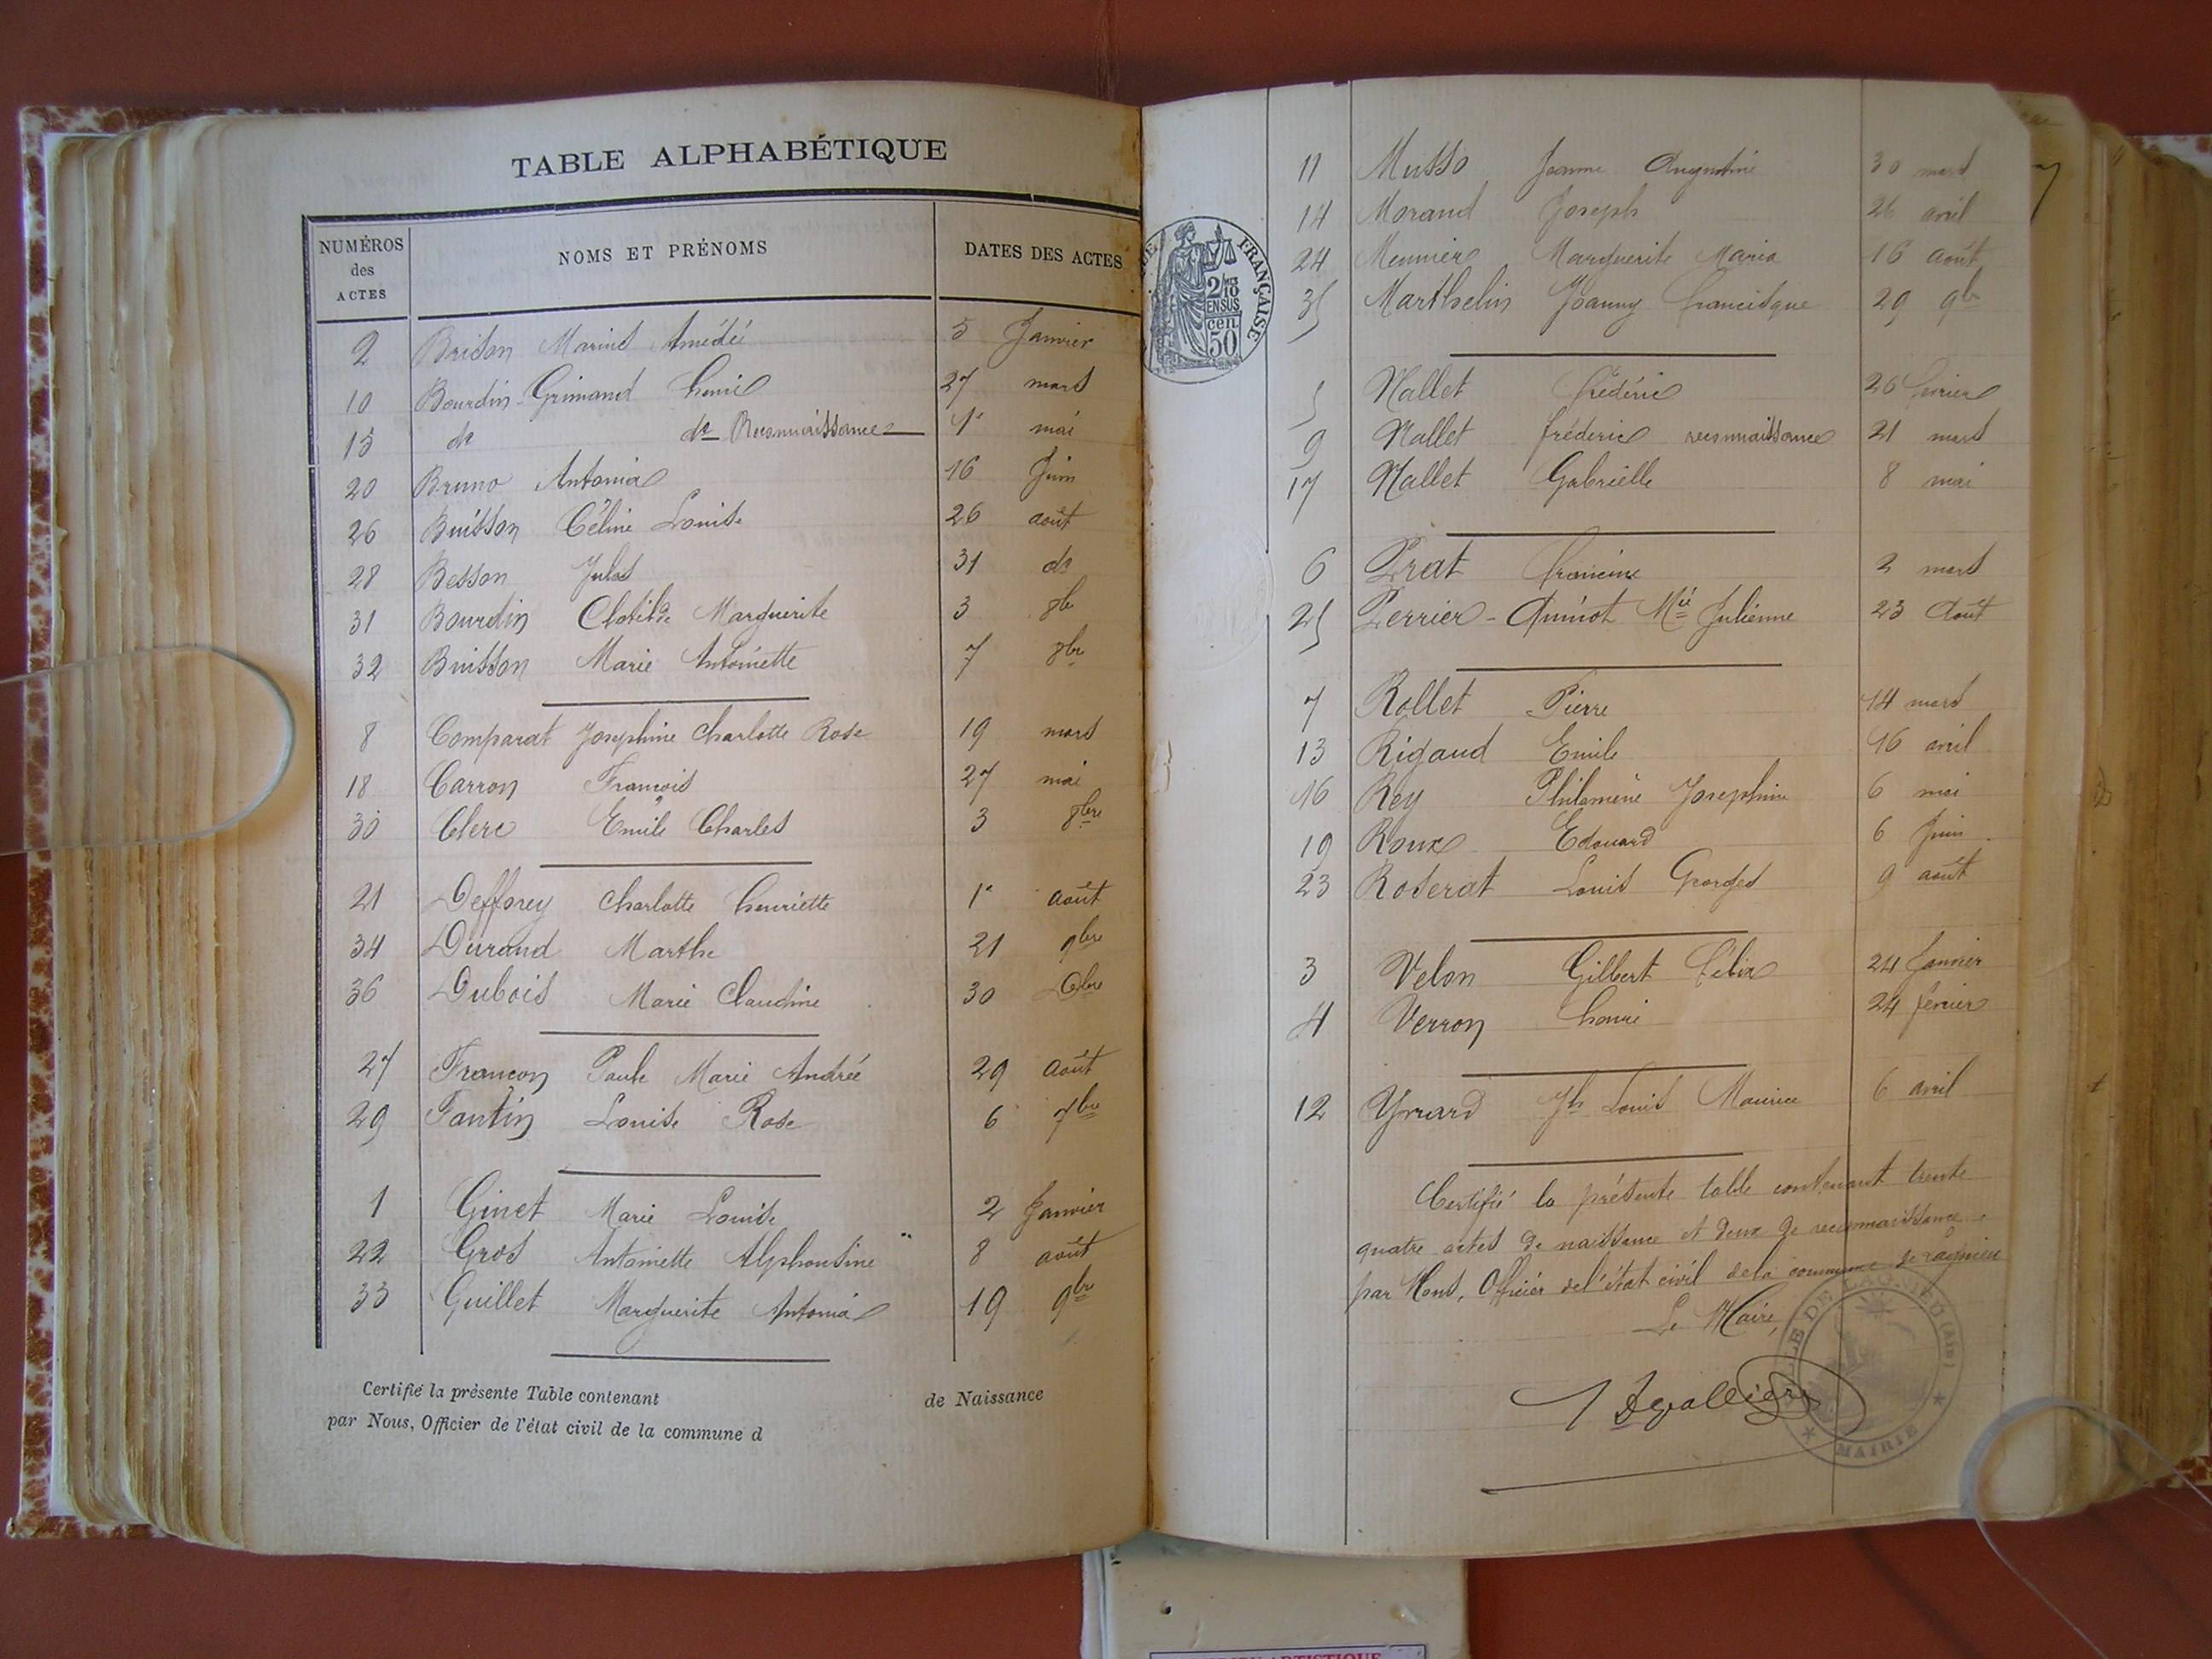 TABLE ALPHABÉTIQUE
NUMÉROS des ACTES NOMS ET PRÉNOMS DATES DES ACTES
2 Brison Marius Amédé 5 Janvier
10 Bourdin-Grimaud henri 27 mars
15 do do Reconnaissance 1r mai
20 Bruno Antonia 16 Juin
26 Buisson Céline Louise 26 août
28 Besson Jules 31 do
31 Bourdin Clotilde Marguerite 3 8br
32 Buisson Marie Antoinette 7 8br
8 Comparat Joséphine Charlotte Rose 19 mars
18 Carron François 27 mai
30 Clerc Emile Charles 3 8bre
21 Defforey Charlotte henriette 1r août
34 Durand Marthe 21 9bre
36 Dubois Marie Claudine 30 Xbre
27 Françon Paule Marie Andrée 29 août
29 Fantin Louise Rose 6 7bre
1 Ginet Marie Louise 2 Janvier
22 Gros Antoinette Alphonsine " 8 août
33 Guillet Marguerite Antonia 19 9bre
Certifié la présente Table contenant de Naissance
par Nous, Officier de l'état civil de la commune d
FRANÇAISE
2/10
EN SUS
cen
50
11 Musso Jeanne Augustine 30 mars
14 Morand Joseph 26 avril
24 Meunier Marguerite Maria 16 août
35 Marthelin Joanny francisque 29 9br
5 Nallet frédéric 26 février
9 Nallet fréderic reconnaissance 21 mars
17 Nallet Gabrielle 8 mai
6 Prat francine 2 mars
25 Perrier-Quinot Mie Julienne 23 Août
7 Rollet Pierre 14 mars
13 Rigaud Emile 16 avril
16 Rey Philomène Josephine 6 mai
19 Roux Edouard 6 Juin
23 Roserat Louis Georges 9 août
3 Velon Gilbert félix 24 Janvier
4 Verron henri 24 février
12 Yvrard Jh Louis Maurice 6 avril
Certifié la présente table contenant trente
quatre actes de naissance et deux de reconnaissance
par Nous, Officier de l'état civil de la commune de Lagnieu
Le Maire,
VILLE DE LAGNIEU (AIN)
MAIRIE